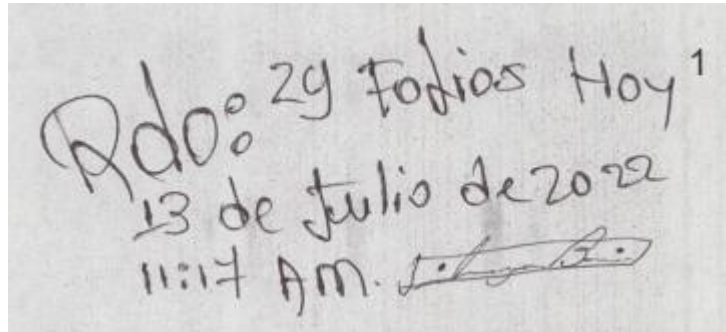 Rdo: 29 Folios Hoy 1
13 de Julio de 2022
11:17 AM.